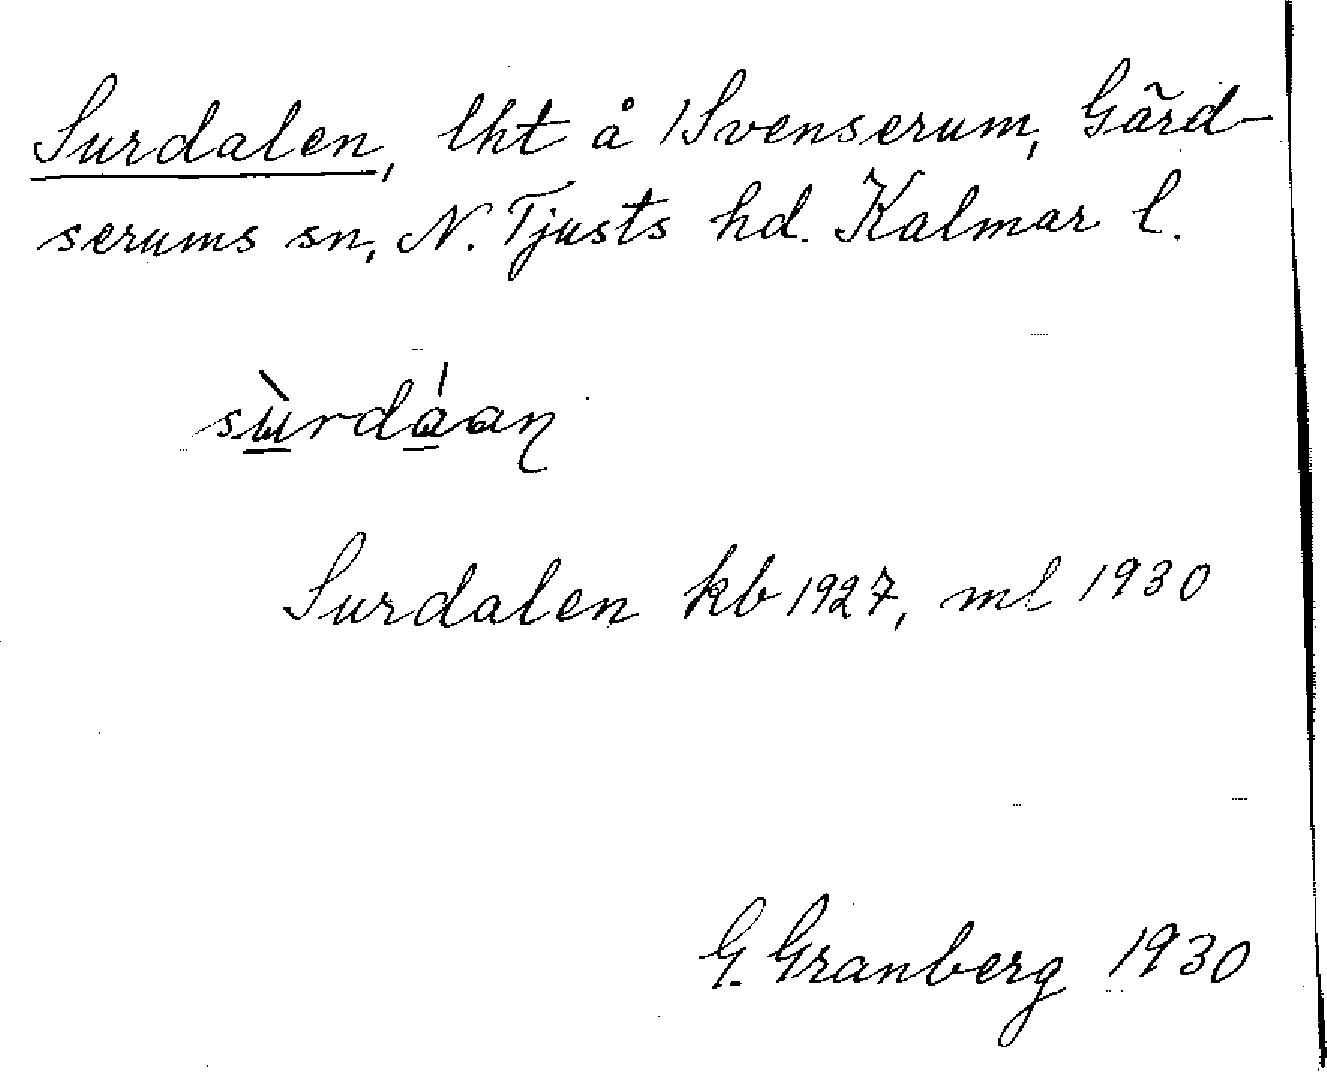 Surdalen, lht å /Svenserum, Gärd-
serums sn, N. Tjusts hd. Kalmar l.
sùrdáan
Surdalen kb 1927, ml 1930
G. Granberg 1930